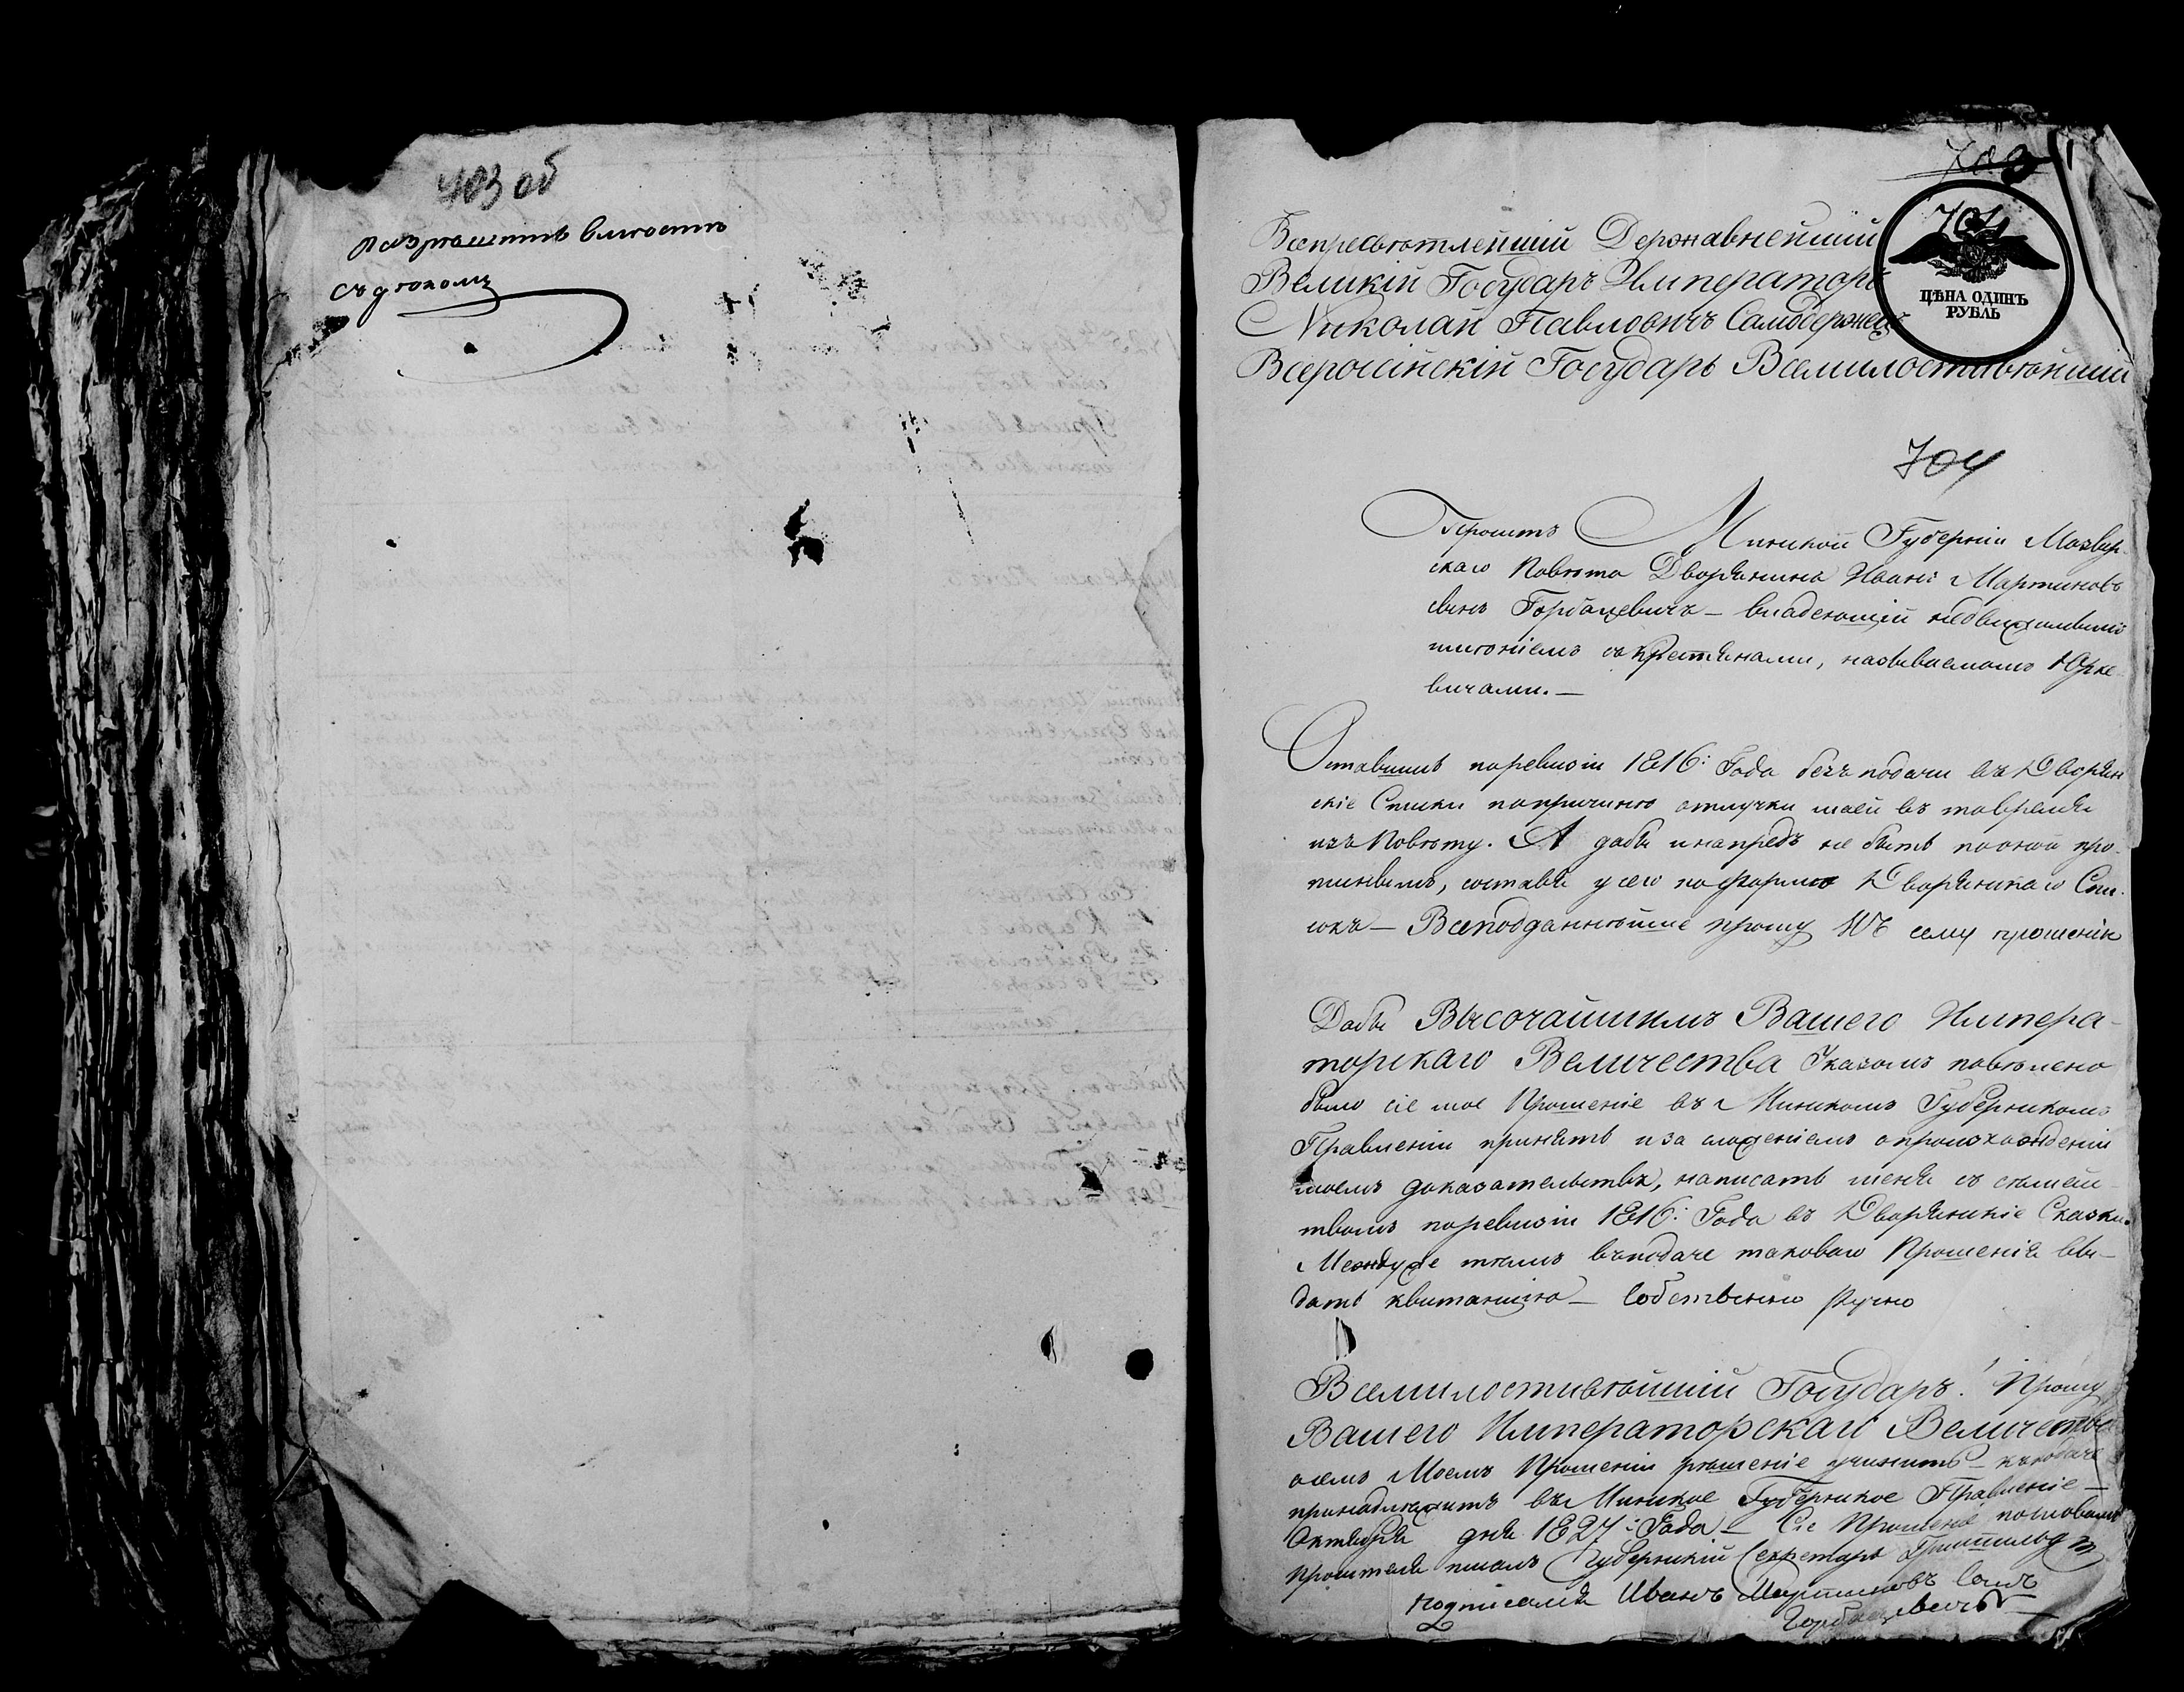 403 об
съ дѣломъ
703
704
ЦѢНА ОДИНЪ
РУБЛЬ
Всепресвѣтлейший Державнейший
Великій Государъ Императоръ
Николай Павловичъ Самодержецъ
Всеросійскій Государь Всемилостивѣйший
704
Проситъ Минской Губерніи Мозыр-
скаго Повѣта Дворянинъ Иванъ Мартиновъ
сынъ Горбацевичъ — владеющій недвижимымъ
имѣніемъ съ крестянами, называемомъ Юрке-
вичами. —
Оставшись поревизіи 1816: Года безъ подачи въ Дворян
скіе Списки попричинѣ отлучки моей въ товремя
изъ Повѣту. А дабы инапредъ не быть по оной про-
пиннымъ, составя у сего по формѣ Дворянскаго Спи-
сокъ — Всеподданнѣйше прошу Къ сему прошенію
Дабы Высочайшимъ Вашего Импера-
торскаго Величества Указомъ повѣлено
было сіе мое Прошеніе въ Минскомъ Губернскомъ
Правленіи принять и за опроисхожденіи
моемъ доказательствъ, написать меня съ сѣмей-
твомъ поревизіи 1816: Года въ Дворянскіе Сказки.
Междуже тѣмъ въподаче таковаго Прошенія вы-
дать квитанцію — Собственно ручно
Всемилостивѣйшій Государъ! Прошу
Вашего Императорскаго Величества
осемъ Моемъ Прошеніи рѣшеніе учинить — къподаче
принадлежитъ въ Минское Губернское Правленіе —
Октября дня 1827: Года — Сіе Прошеніе пословамъ
просителя писалъ Губернскій Секретарь
подписался Иванъ Мартиновъ Сынъ
Горбацевичъ